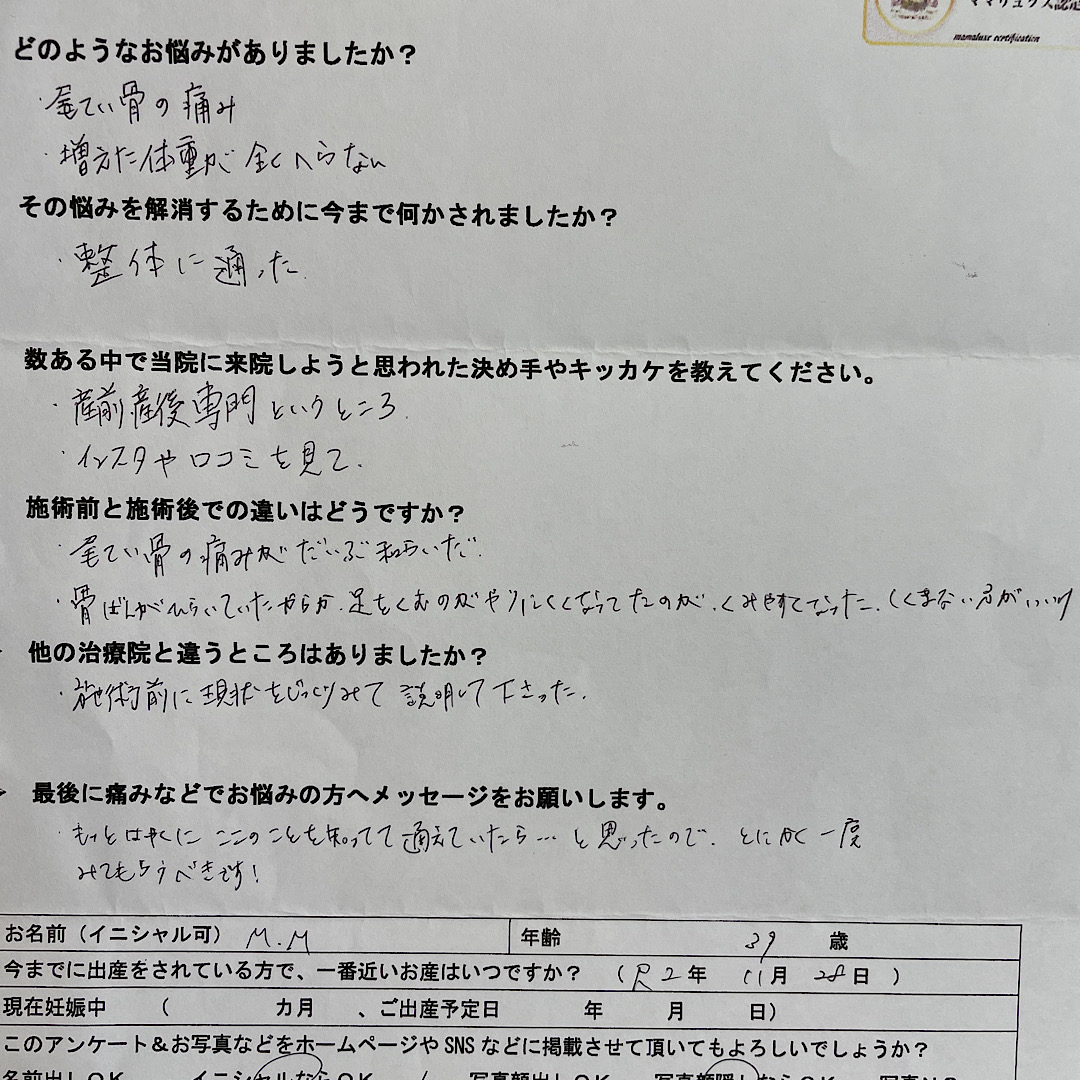 ママリュクス認定
mamaluxe certification
どのようなお悩みがありましたか？
・尾てい骨の痛み
・増えた体重が全くへらない
その悩みを解消するために今まで何かされましたか？
・整体に通った.
数ある中で当院に来院しようと思われた決め手やキッカケを教えてください。
・産前産後専門というところ.
・インスタや口コミを見て.
施術前と施術後での違いはどうですか？
・尾てい骨の痛みがだいぶ和らいだ.
・骨ばんがひらいていたからか、足をくむのがやりにくくなってたのが、くみやすくなった.（くまない方がいいけ
他の治療院と違うところはありましたか？
・施術前に現状をじっくりみて説明して下さった.
最後に痛みなどでお悩みの方へメッセージをお願いします。
・もっとはやくにここのことを知ってて通えていたら…と思ったので、とにかく一度
みてもらうべきです!
お名前（イニシャル可） M.M 年齢 39 歳
今までに出産をされている方で、一番近いお産はいつですか？ （R2年 11月 28日 ）
現在妊娠中 （ カ月 、ご出産予定日 年 月 日）
このアンケート＆お写真などをホームページやSNSなどに掲載させて頂いてもよろしいでしょうか？
名前出しOK イニシャルならOK / 写真顔出しOK 写真顔隠しならOK